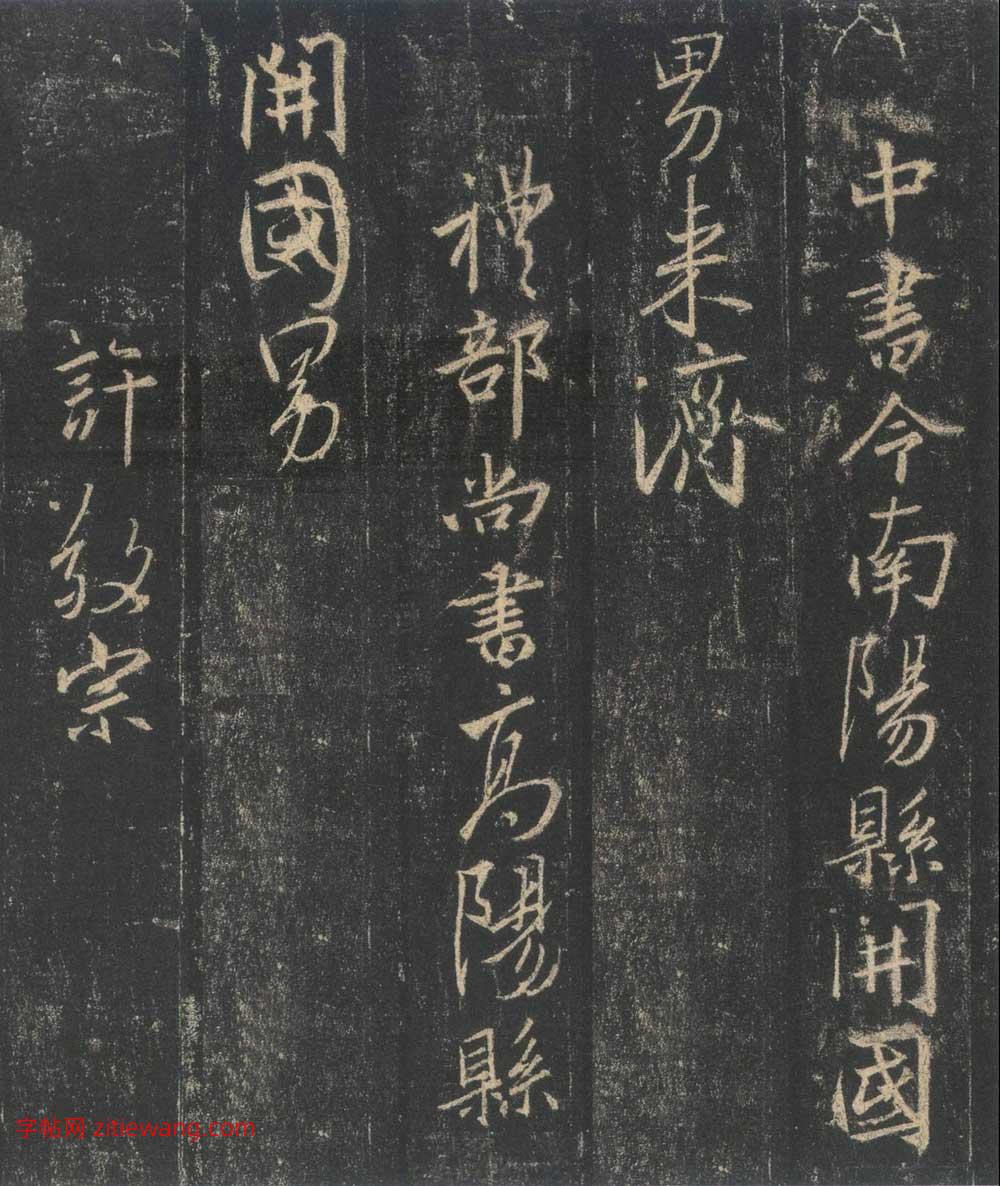 中書令南陽縣開國
男来濟
禮部尚書高陽縣
開國男
許敬宗
字帖网 zitiewang.com